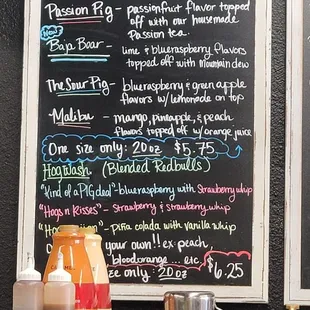 Passion Pig - passionfruit flavor topped
off with our housemade
Passion tea.
New
Baja Boar - lime & blueraspberry flavors
topped off with Mountain dew
The Sour Pig - blueraspberry & green apple
flavors w/ lemonade on top
Malibu - mango, pineapple, & peach
flavors topped off w/ orange juice
One size only: 20oz $5.75
Hogwash (Blended Redbulls)
"Kind of a PIG deal" - blueraspberry with Strawberry whip
"Hogs n Kisses" - Strawberry & Strawberry whip
- Piña colada with vanilla whip
your own!! ex peach,
bloodorange... etc
size only: 20oz $6.25